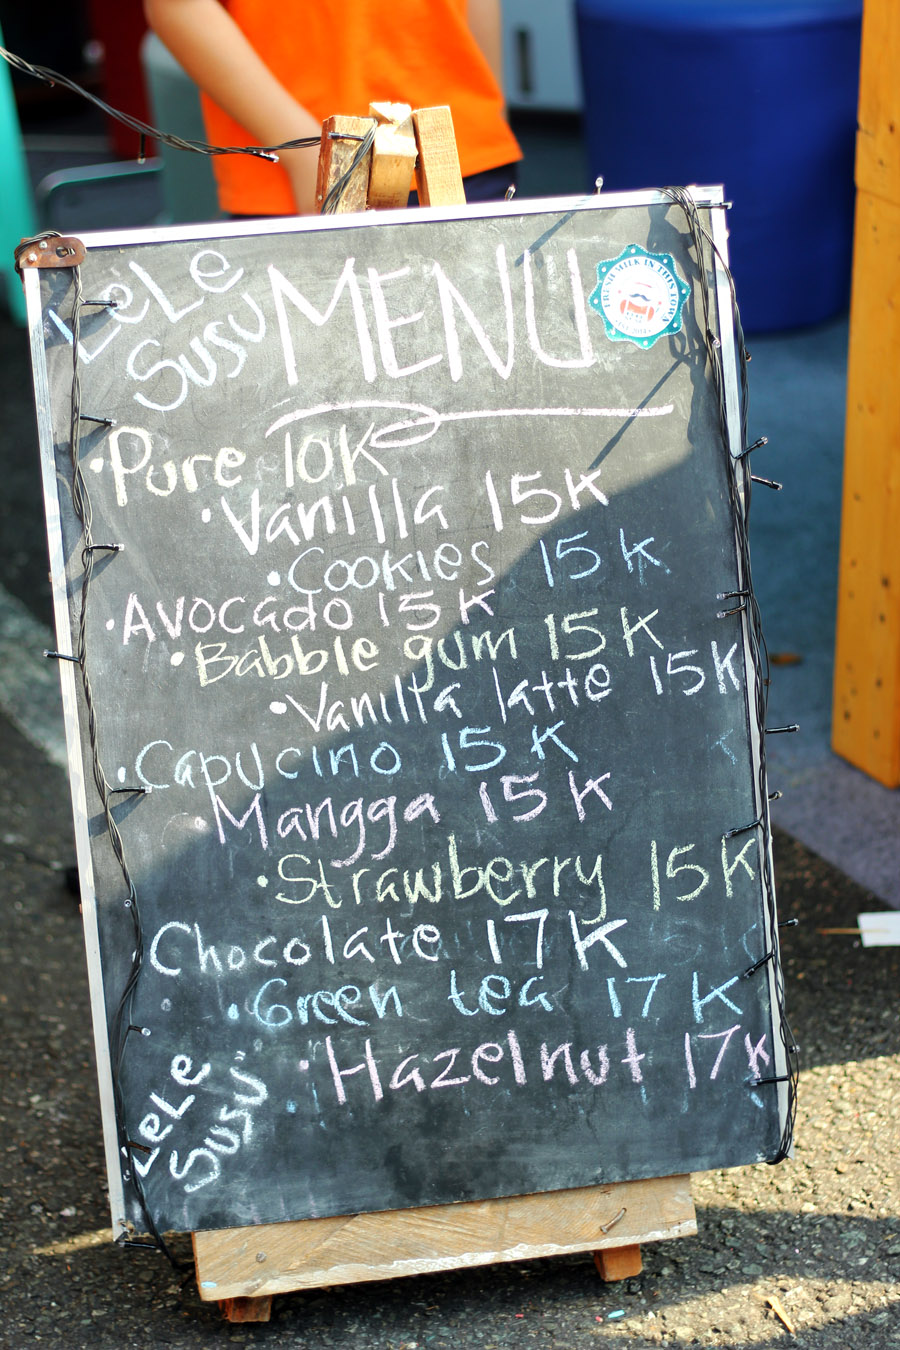 LeLe
Susu
MENU
FRESH MILK IN THIS TOWN
• Pure 10K
• Vanilla 15K
• Cookies 15K
• Avocado 15K
• Babble gum 15K
• Vanilla latte 15K
• Capucino 15K
• Mangga 15K
• Strawberry 15K
Chocolate 17K
• Green tea 17K
• Hazelnut 17K
LeLe
Susu